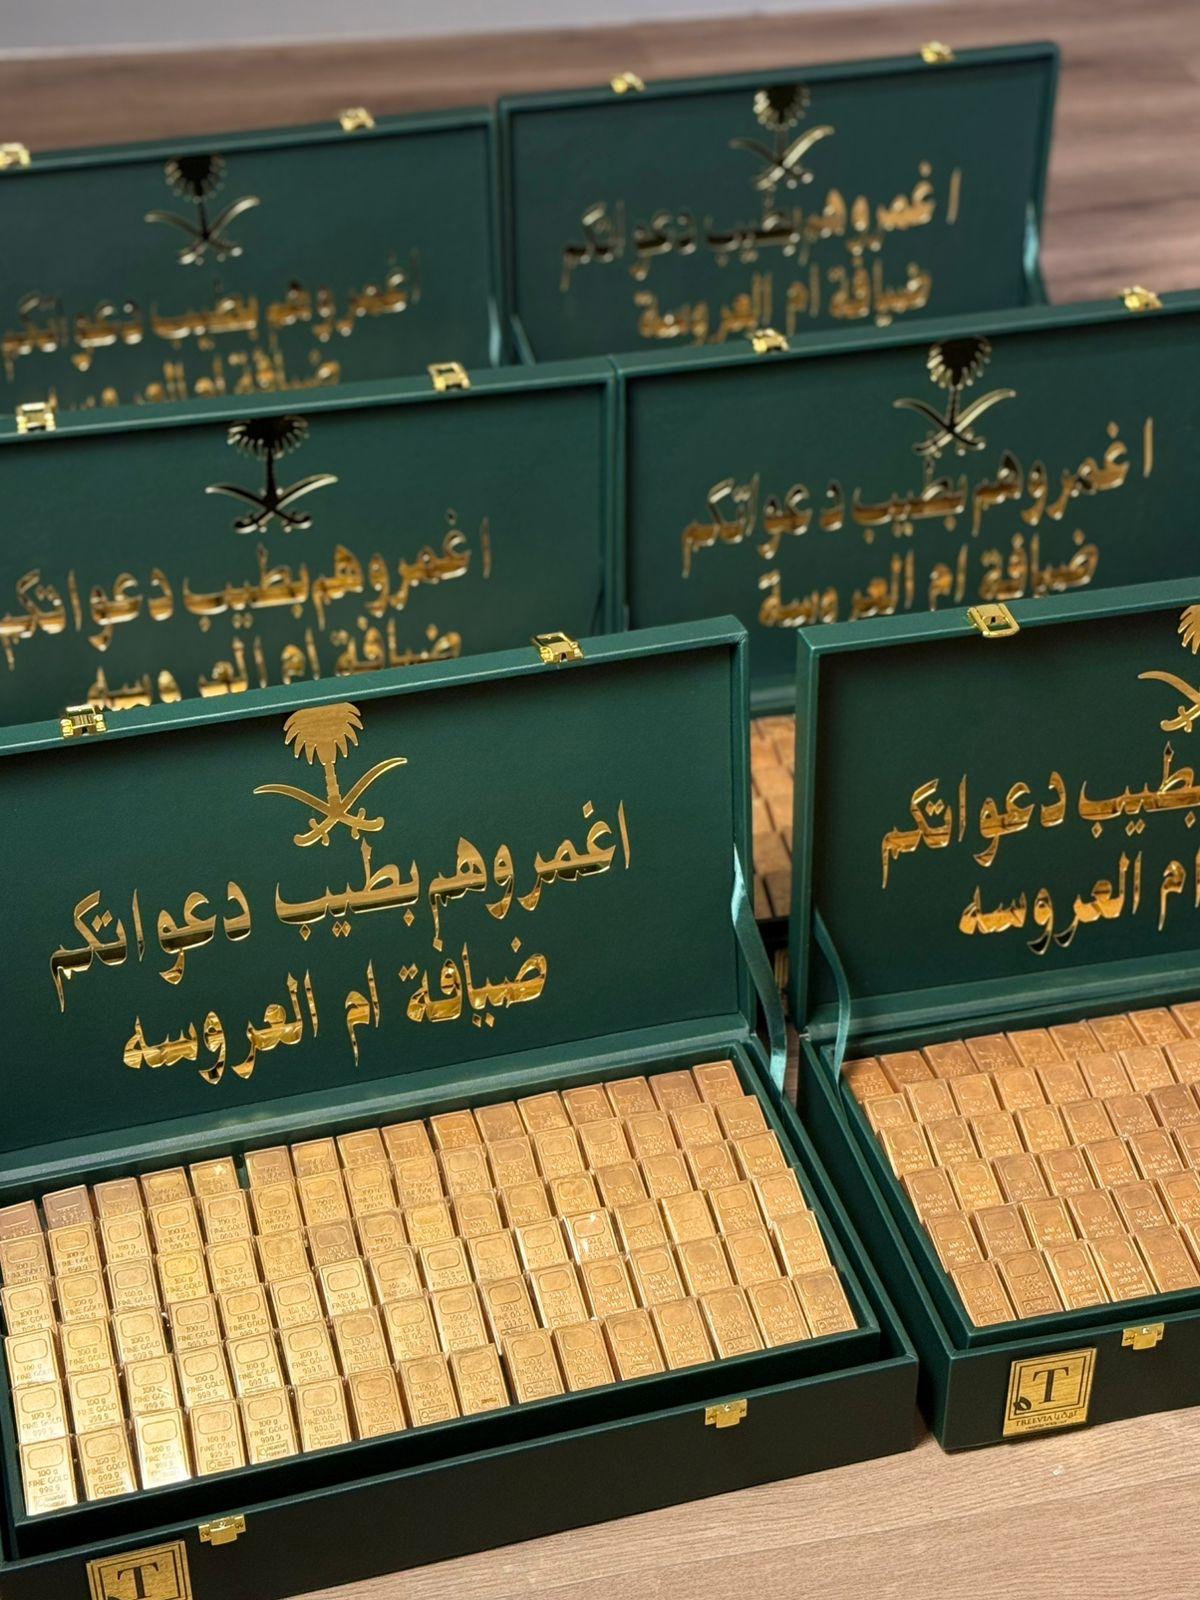 اغمروهم بطيب دعواتكم
ضيافة ام العروسة
اغمروهم بطيب دعواتكم
ضيافة ام العروسة
اغمروهم بطيب دعواتكم
ضيافة ام العروسه
اغمروهم بطيب دعواتكم
ضيافة ام العروسة
اغمروهم بطيب دعواتكم
ضيافة ام العروسه
بطيب دعواتكم
ام العروسه
100 g
FINE GOLD
999.9
T
TREEVIA تريڤيا
T